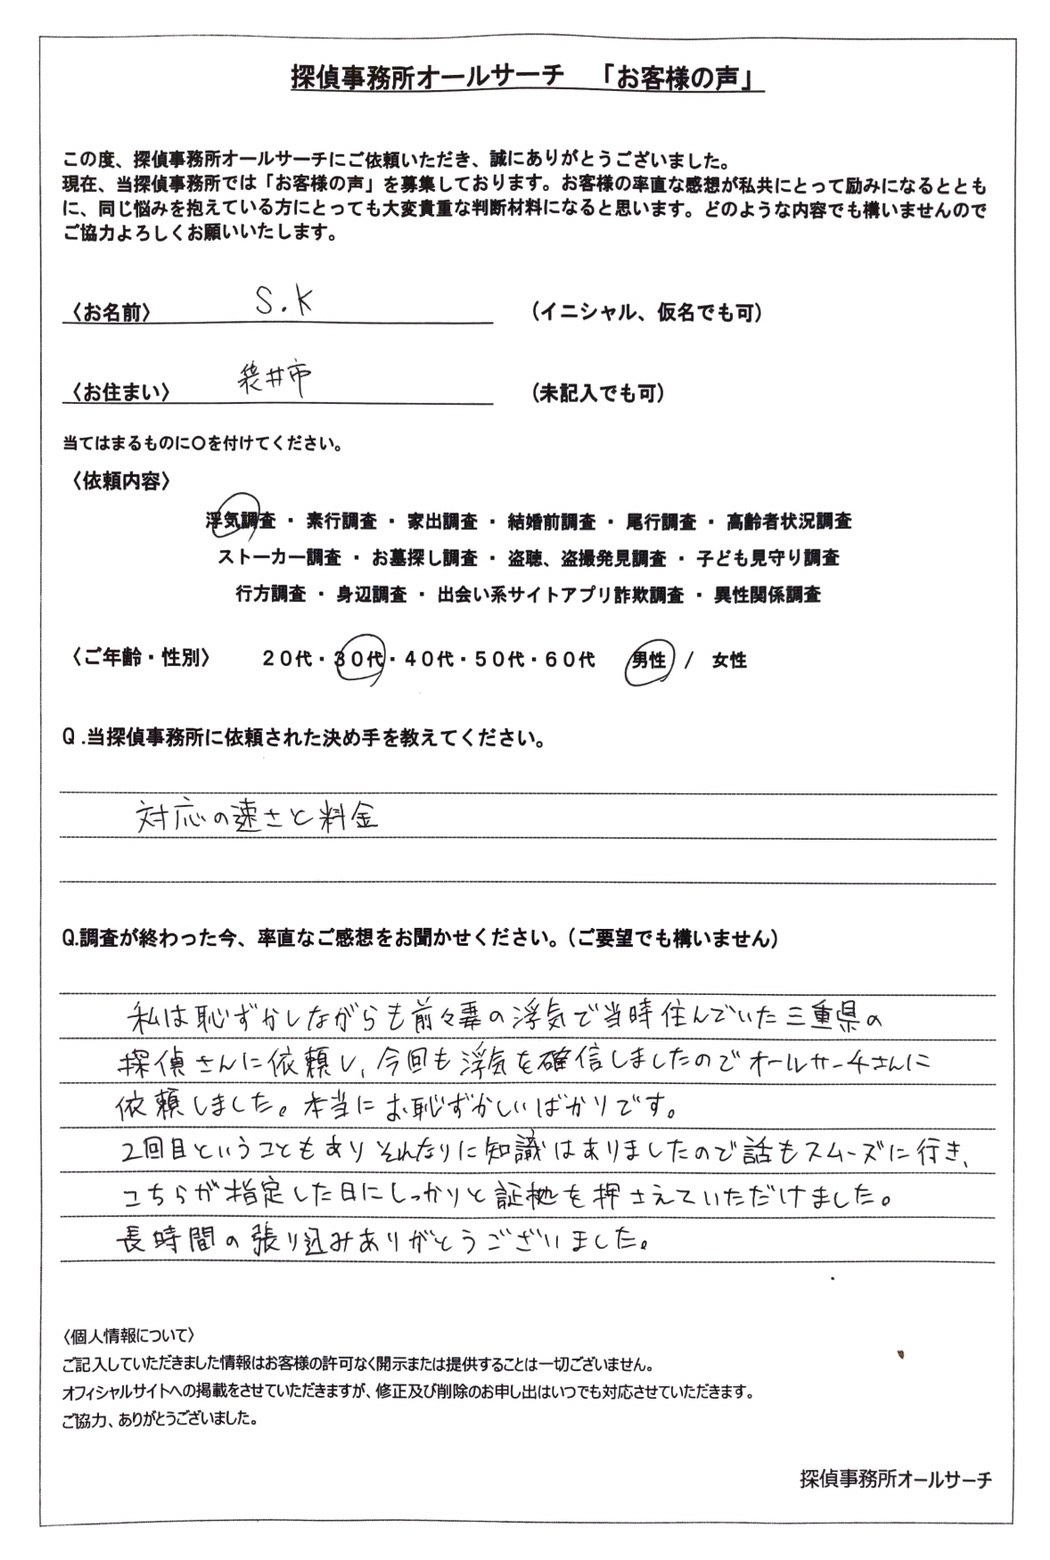 探偵事務所オールサーチ 「お客様の声」
この度、探偵事務所オールサーチにご依頼いただき、誠にありがとうございました。
現在、当探偵事務所では「お客様の声」を募集しております。お客様の率直な感想が私共にとって励みになるととも
に、同じ悩みを抱えている方にとっても大変貴重な判断材料になると思います。どのような内容でも構いませんので
ご協力よろしくお願いいたします。
〈お名前〉 S.K (イニシャル、仮名でも可)
〈お住まい〉 袋井市 (未記入でも可)
当てはまるものに〇を付けてください。
〈依頼内容〉
浮気調査・素行調査・家出調査・結婚前調査・尾行調査・高齢者状況調査
ストーカー調査・お墓探し調査・盗聴、盗撮発見調査・子ども見守り調査
行方調査・身辺調査・出会い系サイトアプリ詐欺調査・異性関係調査
〈ご年齢・性別〉 20代・30代・40代・50代・60代 男性 / 女性
Q.当探偵事務所に依頼された決め手を教えてください。
対応の速さと料金
Q.調査が終わった今、率直なご感想をお聞かせください。(ご要望でも構いません)
私は恥ずかしながらも前々妻の浮気で当時住んでいた三重県の
探偵さんに依頼し、今回も浮気を確信しましたのでオールサーチさんに
依頼しました。本当にお恥ずかしいばかりです。
2回目ということもありそれなりに知識はありましたので話もスムーズに行き、
こちらが指定した日にしっかりと証拠を押さえていただけました。
長時間の張り込みありがとうございました。
〈個人情報について〉
ご記入していただきました情報はお客様の許可なく開示または提供することは一切ございません。
オフィシャルサイトへの掲載をさせていただきますが、修正及び削除のお申し出はいつでも対応させていただきます。
ご協力、ありがとうございました。
探偵事務所オールサーチ